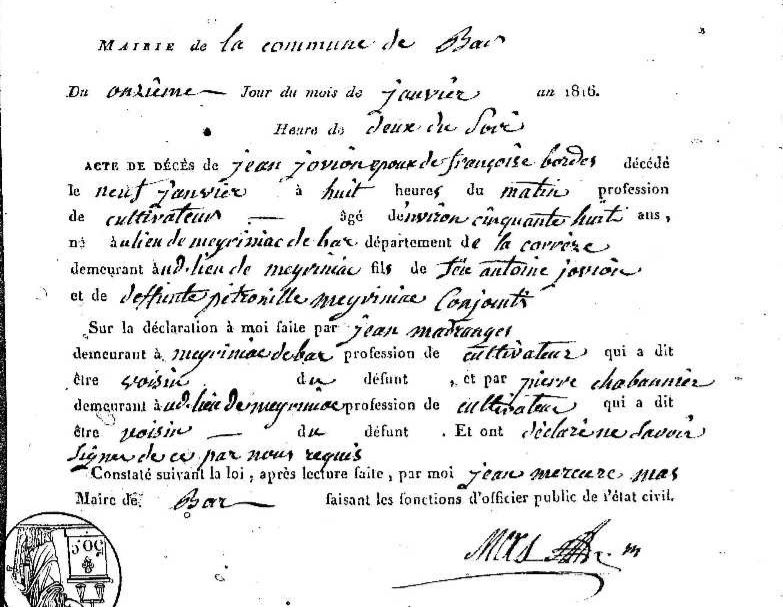 MAIRIE de la commune de Bar
Du onzième Jour du mois de janvier an 1816.
Heure de deux du soir
ACTE DE DÉCÈS de jean jovion epoux de françoise bordes décédé
le neuf janvier à huit heures du matin profession
de cultivateur âgé d'environ cinquante huit ans,
né au lieu de meyriniac de bar département de la corrèze
demeurant aud. lieu de meyriniac fils de feu antoine jovion
et de deffunte pétronille meyriniac Conjoints
Sur la déclaration à moi faite par jean madranges
demeurant à meyriniac de bar profession de cultivateur qui a dit
être voisin du défunt, et par pierre chabannier
demeurant aud. lieu de meyriniac profession de cultivateur qui a dit
être voisin du défunt. Et ont déclaré ne savoir
signer de ce par nous requis
Constaté suivant la loi, après lecture faite, par moi jean mercure mas
Maire de Bar faisant les fonctions d'officier public de l'état civil.
Mas m
50 c